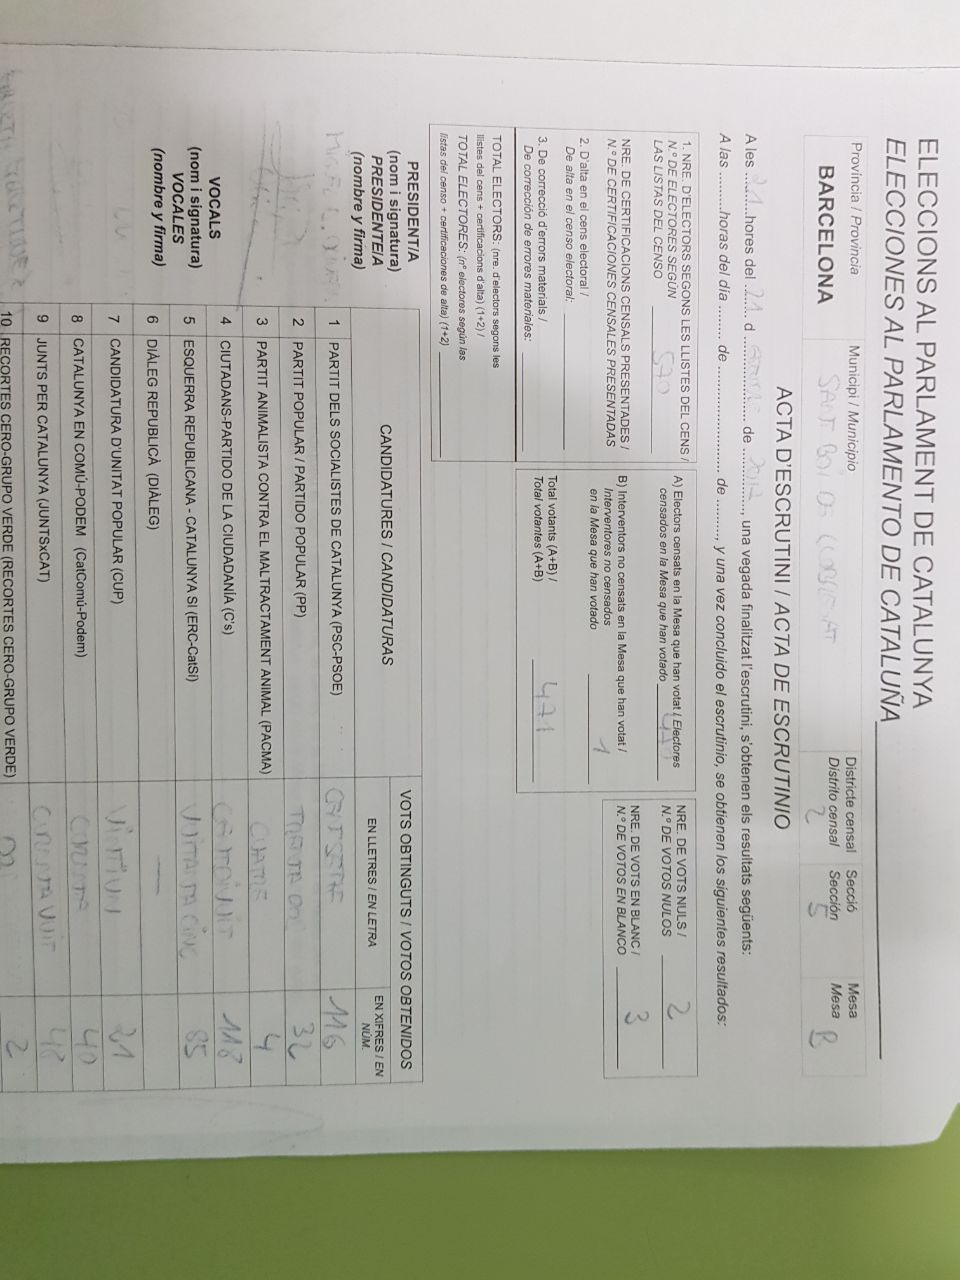 ELECCIONS AL PARLAMENT DE CATALUNYA
ELECCIONES AL PARLAMENTO DE CATALUÑA
Província / Provincia
BARCELONA
Municipi / Municipio
SANT BOI DE LLOBREGAT
Districte censal
Distrito censal
2
Secció
Sección
5
Mesa
Mesa
B
ACTA D'ESCRUTINI / ACTA DE ESCRUTINIO
A les 21 hores del 21 d ................ de 2017, una vegada finalitzat l'escrutini, s'obtenen els resultats següents:
A las ..........horas del día ......... de .......................... de .........., y una vez concluido el escrutinio, se obtienen los siguientes resultados:
1. NRE. D'ELECTORS SEGONS LES LLISTES DEL CENS /
N.º DE ELECTORES SEGÚN
LAS LISTAS DEL CENSO 570
NRE. DE CERTIFICACIONS CENSALS PRESENTADES /
N.º DE CERTIFICACIONES CENSALES PRESENTADAS
2. D'alta en el cens electoral /
De alta en el censo electoral:
3. De correcció d'errors materials /
De corrección de errores materiales:
TOTAL ELECTORS: (nre. d'electors segons les
llistes del cens + certificacions d'alta) (1+2) /
TOTAL ELECTORES: (nº electores según las
listas del censo + certificaciones de alta) (1+2)
A) Electors censats en la Mesa que han votat / Electores
censados en la Mesa que han votado 470
B) Interventors no censats en la Mesa que han votat /
Interventores no censados
en la Mesa que han votado 1
Total votants (A+B) /
Total votantes (A+B) 471
NRE. DE VOTS NULS /
N.º DE VOTOS NULOS 2
NRE. DE VOTS EN BLANC /
N.º DE VOTOS EN BLANCO 3
PRESIDENT/A
(nom i signatura)
PRESIDENTE/A
(nombre y firma)
VOCALS
(nom i signatura)
VOCALES
(nombre y firma)
CANDIDATURES / CANDIDATURAS
VOTS OBTINGUTS / VOTOS OBTENIDOS
EN LLETRES / EN LETRA
EN XIFRES / EN NÚM.
1 PARTIT DELS SOCIALISTES DE CATALUNYA (PSC-PSOE) 116
2 PARTIT POPULAR / PARTIDO POPULAR (PP) 32
3 PARTIT ANIMALISTA CONTRA EL MALTRACTAMENT ANIMAL (PACMA) 4
4 CIUTADANS-PARTIDO DE LA CIUDADANÍA (C's) 118
5 ESQUERRA REPUBLICANA - CATALUNYA SI (ERC-CatSI) 85
6 DIÀLEG REPUBLICÀ (DIÀLEG)
7 CANDIDATURA D'UNITAT POPULAR (CUP) 21
8 CATALUNYA EN COMÚ-PODEM (CatComú-Podem) 40
9 JUNTS PER CATALUNYA (JUNTSxCAT) 48
10 RECORTES CERO-GRUPO VERDE (RECORTES CERO-GRUPO VERDE) 2